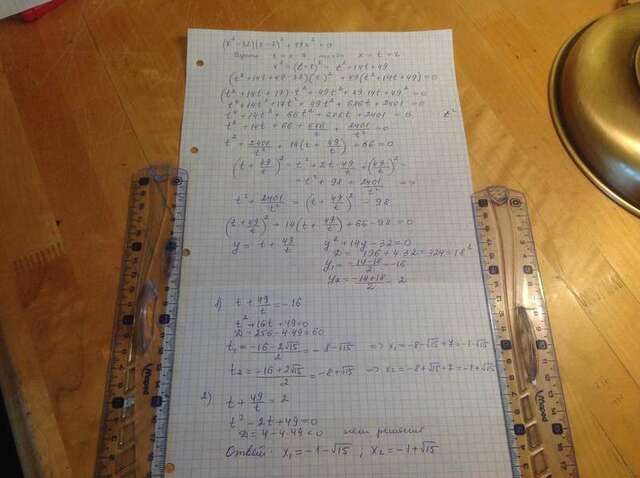 (x² - 32)(x - 7)² + 49x² = 0
x = t + 7
x² = (t + 7)² = t² + 14t + 49
(t² + 14t + 49 - 32)(t)² + 49(t² + 14t + 49) = 0
(t² + 14t + 17) · t² + 49t² + 49·14t + 49² = 0
t⁴ + 14t³ + 17t² + 49t² + 686t + 2401 = 0
t⁴ + 14t³ + 66t² + 686t + 2401 = 0 t²
t² + 14t + 66 + 686/t + 2401/t² = 0
t² + 2401/t² + 14(t + 49/t) + 66 = 0
(t + 49/t)² = t² + 2t·49/t + (49/t)² =
= t² + 98 + 2401/t² =>
t² + 2401/t² = (t + 49/t)² - 98
(t + 49/t)² + 14(t + 49/t) + 66 - 98 = 0
y = t + 49/t y² + 14y - 32 = 0
D = 196 + 4·32 = 324 = 18²
y₁ = (-14-18)/2 = -16
y₂ = (-14+18)/2 = 2
1) t + 49/t = -16
t² + 16t + 49 = 0
D = 256 - 4·49 = 60
t₁ = (-16 - 2√15)/2 = -8 - √15 => x₁ = -8 - √15 + 7 = -1 - √15
t₂ = (-16 + 2√15)/2 = -8 + √15 => x₂ = -8 + √15 + 7 = -1 + √15
2) t + 49/t = 2
t² - 2t + 49 = 0
D = 4 - 4·49 < 0 нет решения
Ответ: x₁ = -1 - √15 ; x₂ = -1 + √15
Maped
Maped